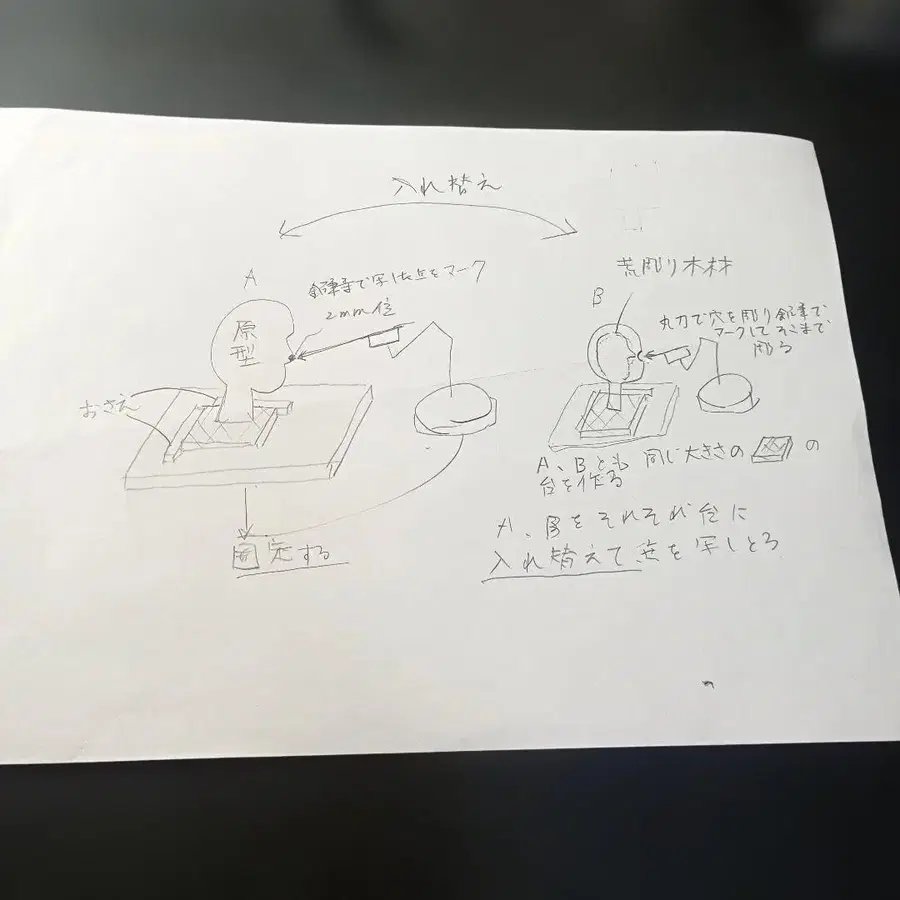 入れ替え
A
鉛筆等で写し点をマーク
2mm位
原
型
おさえ
固定する
荒彫り木材
B
丸刀で穴を彫り鉛筆で
マークしてそこまで
彫る
A、Bとも 同じ大きさの の
台を作る
A、Bをそれぞれ台に
入れ替えて 点を写しとる